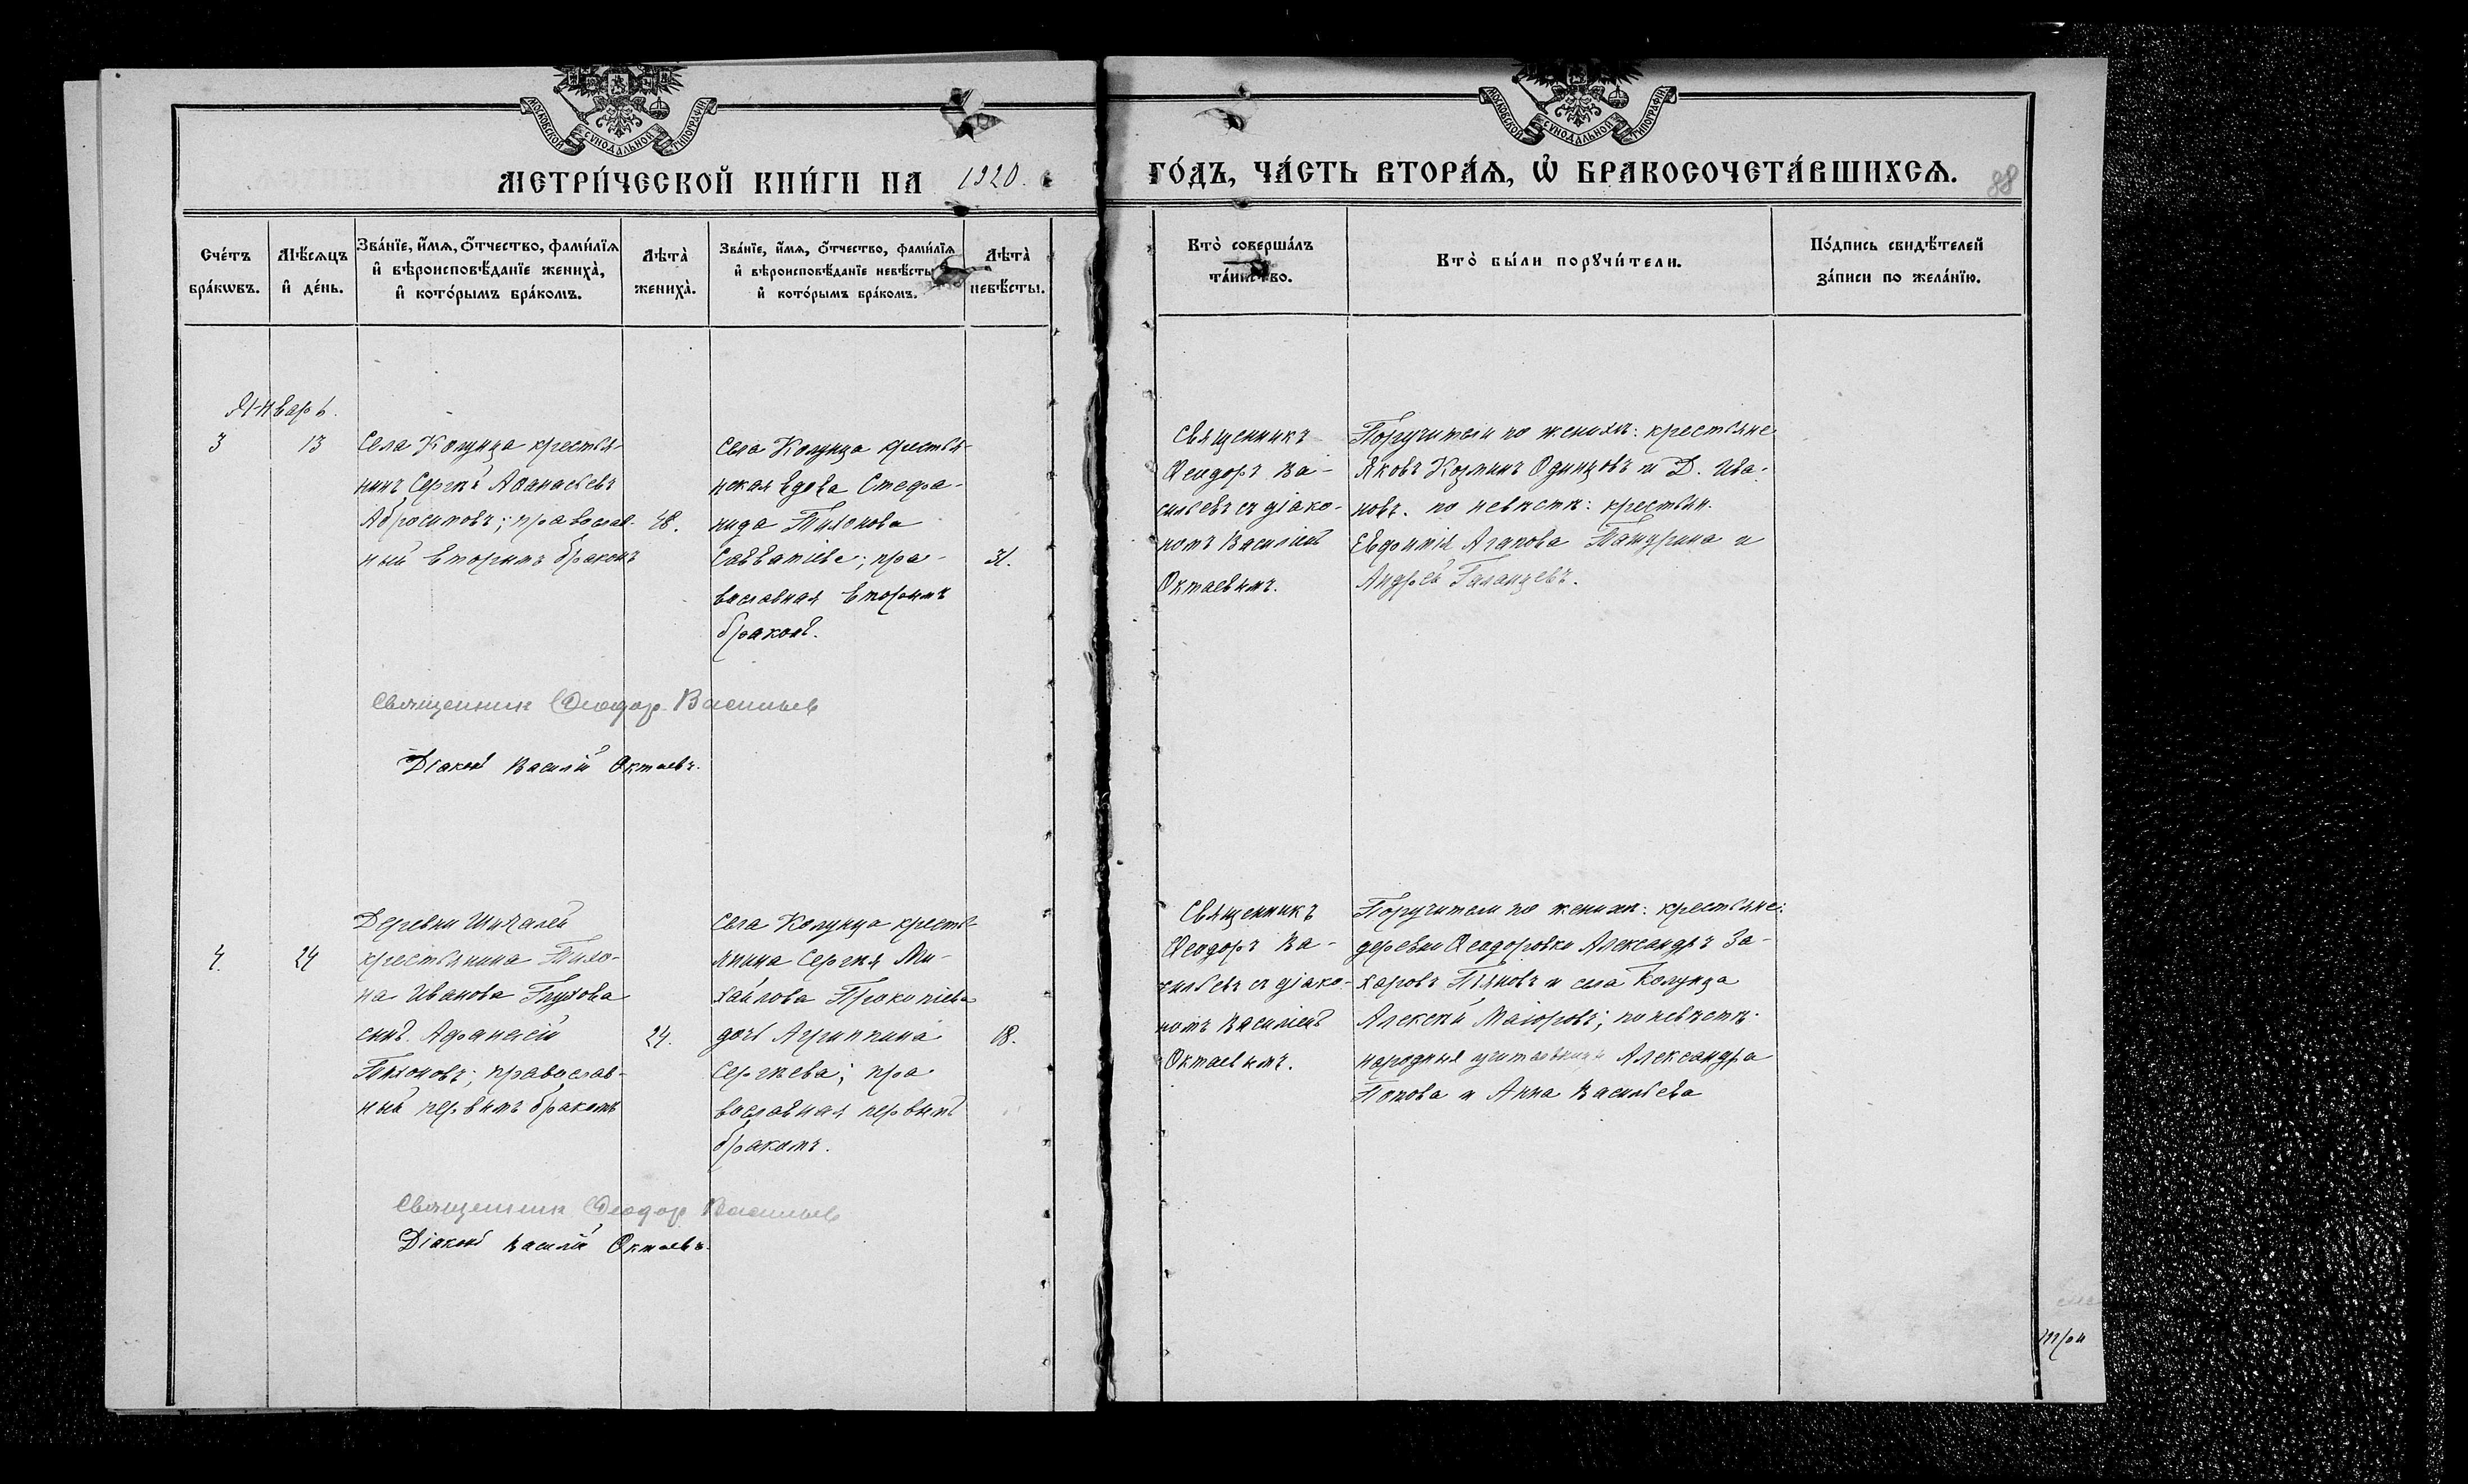 МОСКОВСКОЙ СУНОДАЛЬНОЙ ТИПОГРАФІИ
МОСКОВСКОЙ СУНОДАЛЬНОЙ ТИПОГРАФІИ
МЕТРИ́ЧЕСКОЙ КНИ́ГИ НА 1920.
ГО́ДЪ, ЧА́СТЬ ВТОРА́Ѧ, Ѽ БРАКОСОЧЕТА́ВШИХСѦ.
88
Сче́тъ
бра́кѡвъ.
Мѣ́сѧцъ
и҆ де́нь.
Зва́нїе, и҆́мѧ, ѻ҆́тчество, фами́лїѧ
и҆ вѣроисповѣ́данїе жениха̀,
и҆ кото́рымъ бра́комъ.
Лѣта̀
жениха̀.
Зва́нїе, и҆́мѧ, ѻ҆́тчество, фами́лїѧ
и҆ вѣроисповѣ́данїе невѣ́сты
и҆ кото́рымъ бра́комъ.
Лѣта̀
невѣ́сты.
Кто̀ соверша́лъ
та́инство.
Кто̀ бы́ли порꙋчи́тели.
По́дпись свидѣ́телей
за́писи по жела́нїю.
Январь.
3
13
Села Копунца крестья-
нинъ Сергѣй Аѳанасьевъ
Абросимовъ; православ-
ный вторымъ бракомъ
48.
Села Колунца крестья-
нская вдова Стефа-
нида Тихонова
Савватіева; пра-
вославная вторымъ
бракомъ.
31.
Священникъ
Ѳеодоръ Ва-
сильевъ съ діако-
номъ Василіемъ
Октаевымъ.
Поручители по женихѣ: крестьяне
Яковъ Козминъ Одинцовъ и Д. Ива-
новъ. по невѣстѣ: крестьян.
Евфимія Агапова и
Андрей Галанцевъ.
Священник Ѳеодор Васильев
Діаконъ Василій Октаевъ.
4.
24
Деревни Шихалей
крестьянина Тихо-
на Иванова Глухова
сынъ Афанасій
Тихоновъ; православ-
ный первымъ бракомъ
24.
Села Колунца кресть-
янина Сергѣя Ми-
хайлова Прокопіева
дочь Агриппина
Сергѣева; пра-
вославная первымъ
бракомъ.
18.
Священникъ
Ѳеодоръ Ва-
сильевъ съ діако-
номъ Василіемъ
Октаевымъ.
Поручители по женихѣ: крестьяне:
деревни Ѳеодоровки Александръ За-
харовъ и села Колунца
Алексѣй Маіоровъ; по невѣстѣ:
народныя учительницы Александра
Попова и Анна Васильева
Священник Ѳеодор Васильев
Діаконъ Василій Октаевъ.
три